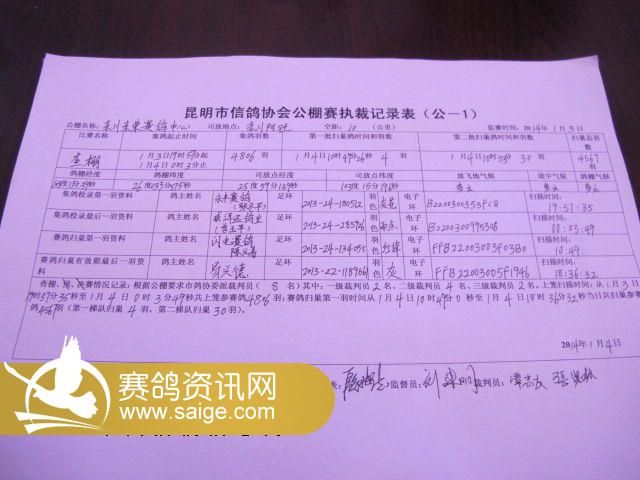 昆明市信鸽协会公棚赛执裁记录表（公—1）
公棚名称：东川东东赛鸽中心 司放地点：东川阿旺 空距：10（公里） 监赛时间：2014年1月3日
比赛名称 集鸽起止时间 集鸽羽数 第一批归巢鸽时间和羽数 第二批归巢鸽时间和羽数 归巢总羽数
查棚 1月3日19时57分起 1月4日0时3分止 4806羽 1月4日10时49分0秒 4羽 1月4日10时 30羽 4567羽
鸽棚经度 鸽棚纬度 司放点纬度 司放点经度 放飞地气候 途中气候 归巢地气候
26度 25度 103度15分19秒 多云 多云 多云
集鸽检录第一羽资料 鸽主姓名 足环 2013-24-180512 羽色 灰花 电子环 B220030353FC8 扫描时间： 19:57:35
集鸽检录最后一羽资料 鸽主姓名 足环 2013-24-285906 羽色 雨点 电子环 扫描时间： 00:03:49
赛鸽归巢第一羽资料 鸽主姓名 闪电赛鸽 足环 2013-24-134055 羽色 红绛 电子环 FFB22003083F03B0 扫描时间： 10:49
赛鸽归巢有效期最后一羽资料 鸽主姓名 足环 2013-22-1189664 羽色 灰 电子环 FFB22003005F1946 扫描时间： 18:36:32
查棚、验、决赛情况记录：根据公棚要求市鸽协委派裁判员（8名）其中：一级裁判员2名、二级裁判员4名、三级裁判员2名，上笼扫描时间：从1月3日
19时57分35秒至1月4日0时3分49秒共上笼参赛鸽4806羽；赛鸽归巢第一羽时间从1月4日10时49分0秒至1月4日18时36分32秒当日共归巢参赛
鸽4567羽（第一梯队归巢4羽、第二梯队归巢30羽）。
2014年1月4日
监督员： 裁判员：
赛鸽资讯网
www.saige.com